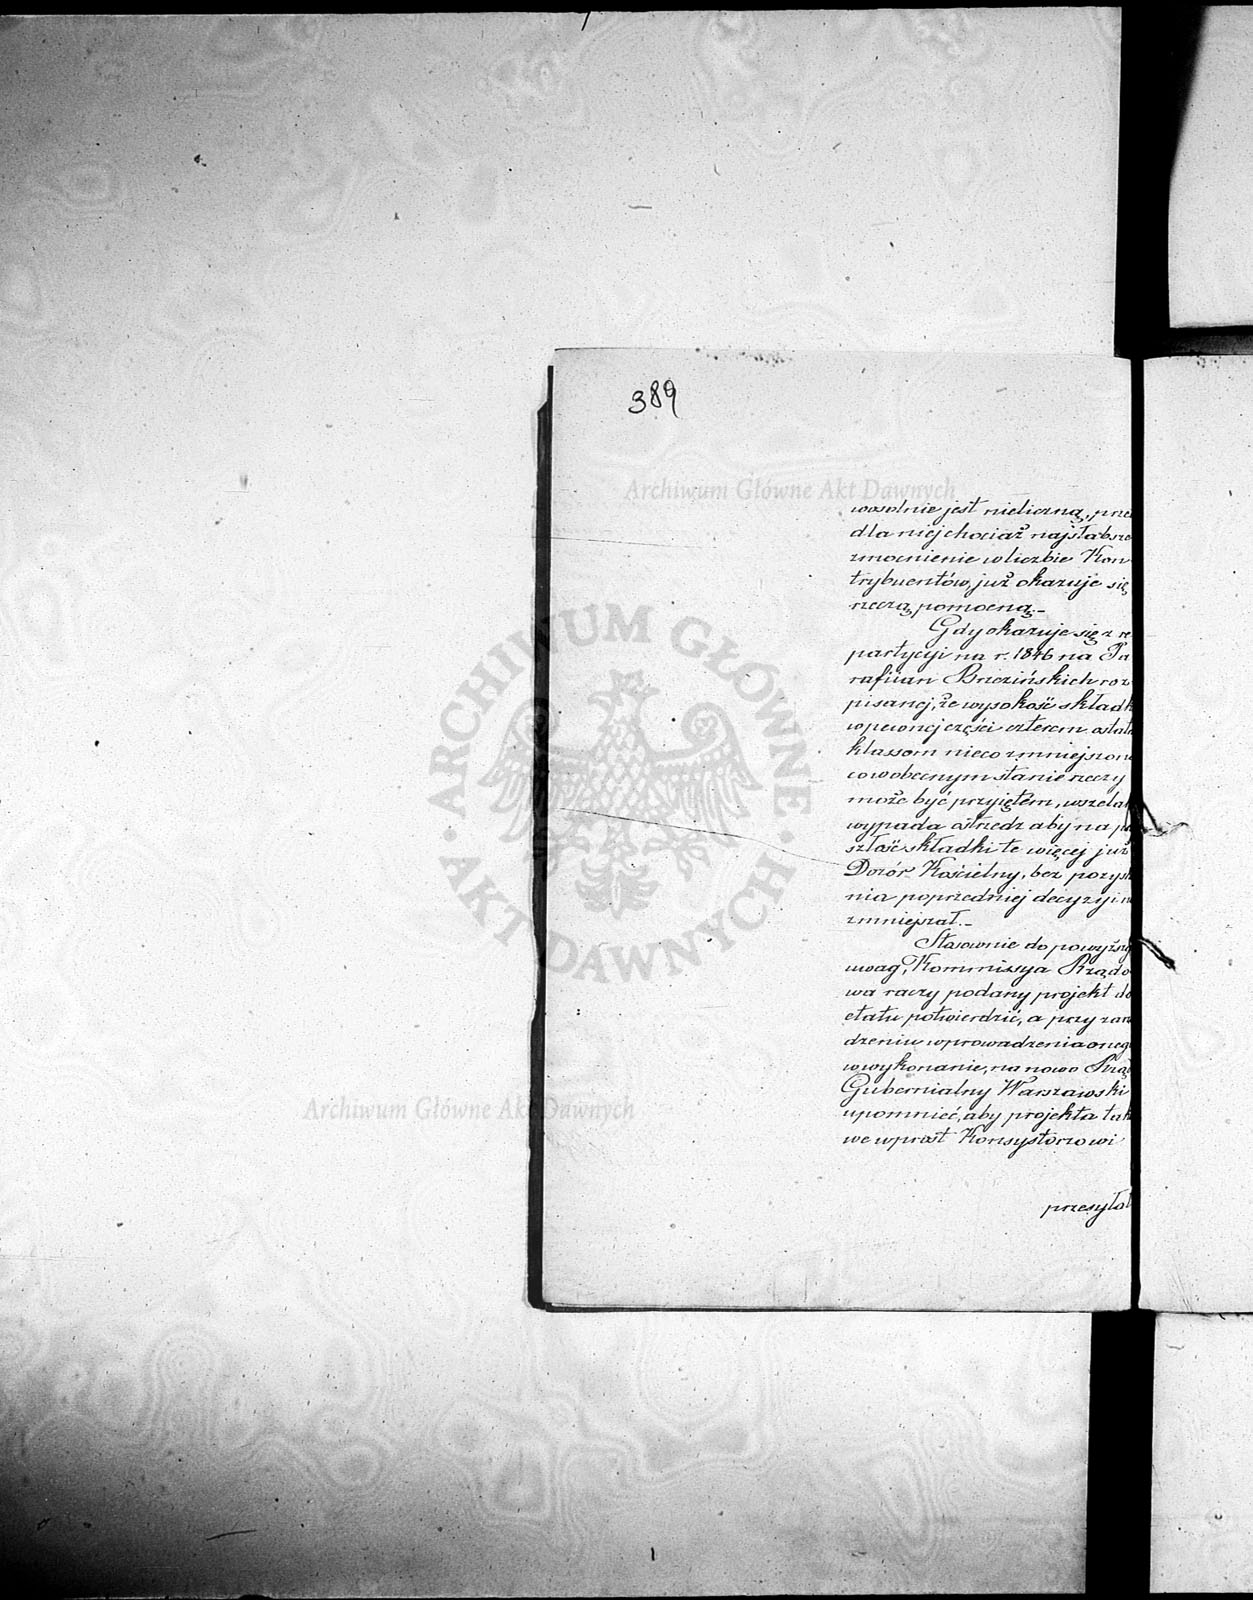 389
Archiwum Główne Akt Dawnych
wosolnie jest nieliczną, prze
dla niej chociaż najsłabsze
zmocnienie w liczbie Kon
trybuentów, już okazuje się
rzeczą pomocną.–
Gdy okazuje się z re
partycyi na r. 1846 na Pa
rafiian Brzezińskich roz
pisanej, że wysokość składk
w pewnej części czterem ostat
klassom nieco zmniejszono
co w obecnym stanie rzeczy
może być przyjętem, wszelak
wypada ostrzedz aby na p
szłość składki te więcej już
Dozór Kościelny, bez pozysk
nia poprzedniej decyzyi n
zmniejszał.–
Stosownie do powyższy
uwag, Kommissya Rządo
wa raczy podany projekt do
etatu potwierdzić, a przy zarz
dzeniu wprowadzenia onego
w wykonanie, na nowo Rząd
Gubernialny Warszawski
upomnieć, aby projekta tak
we wprost Konsystorzowi
przesyłał
ARCHIWUM GŁÓWNE
AKT DAWNYCH
Archiwum Główne Akt Dawnych